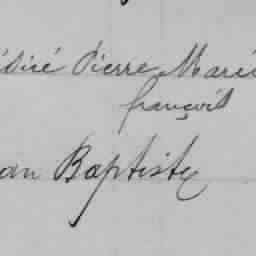 ésiré Pierre Marie
françois
an Baptiste